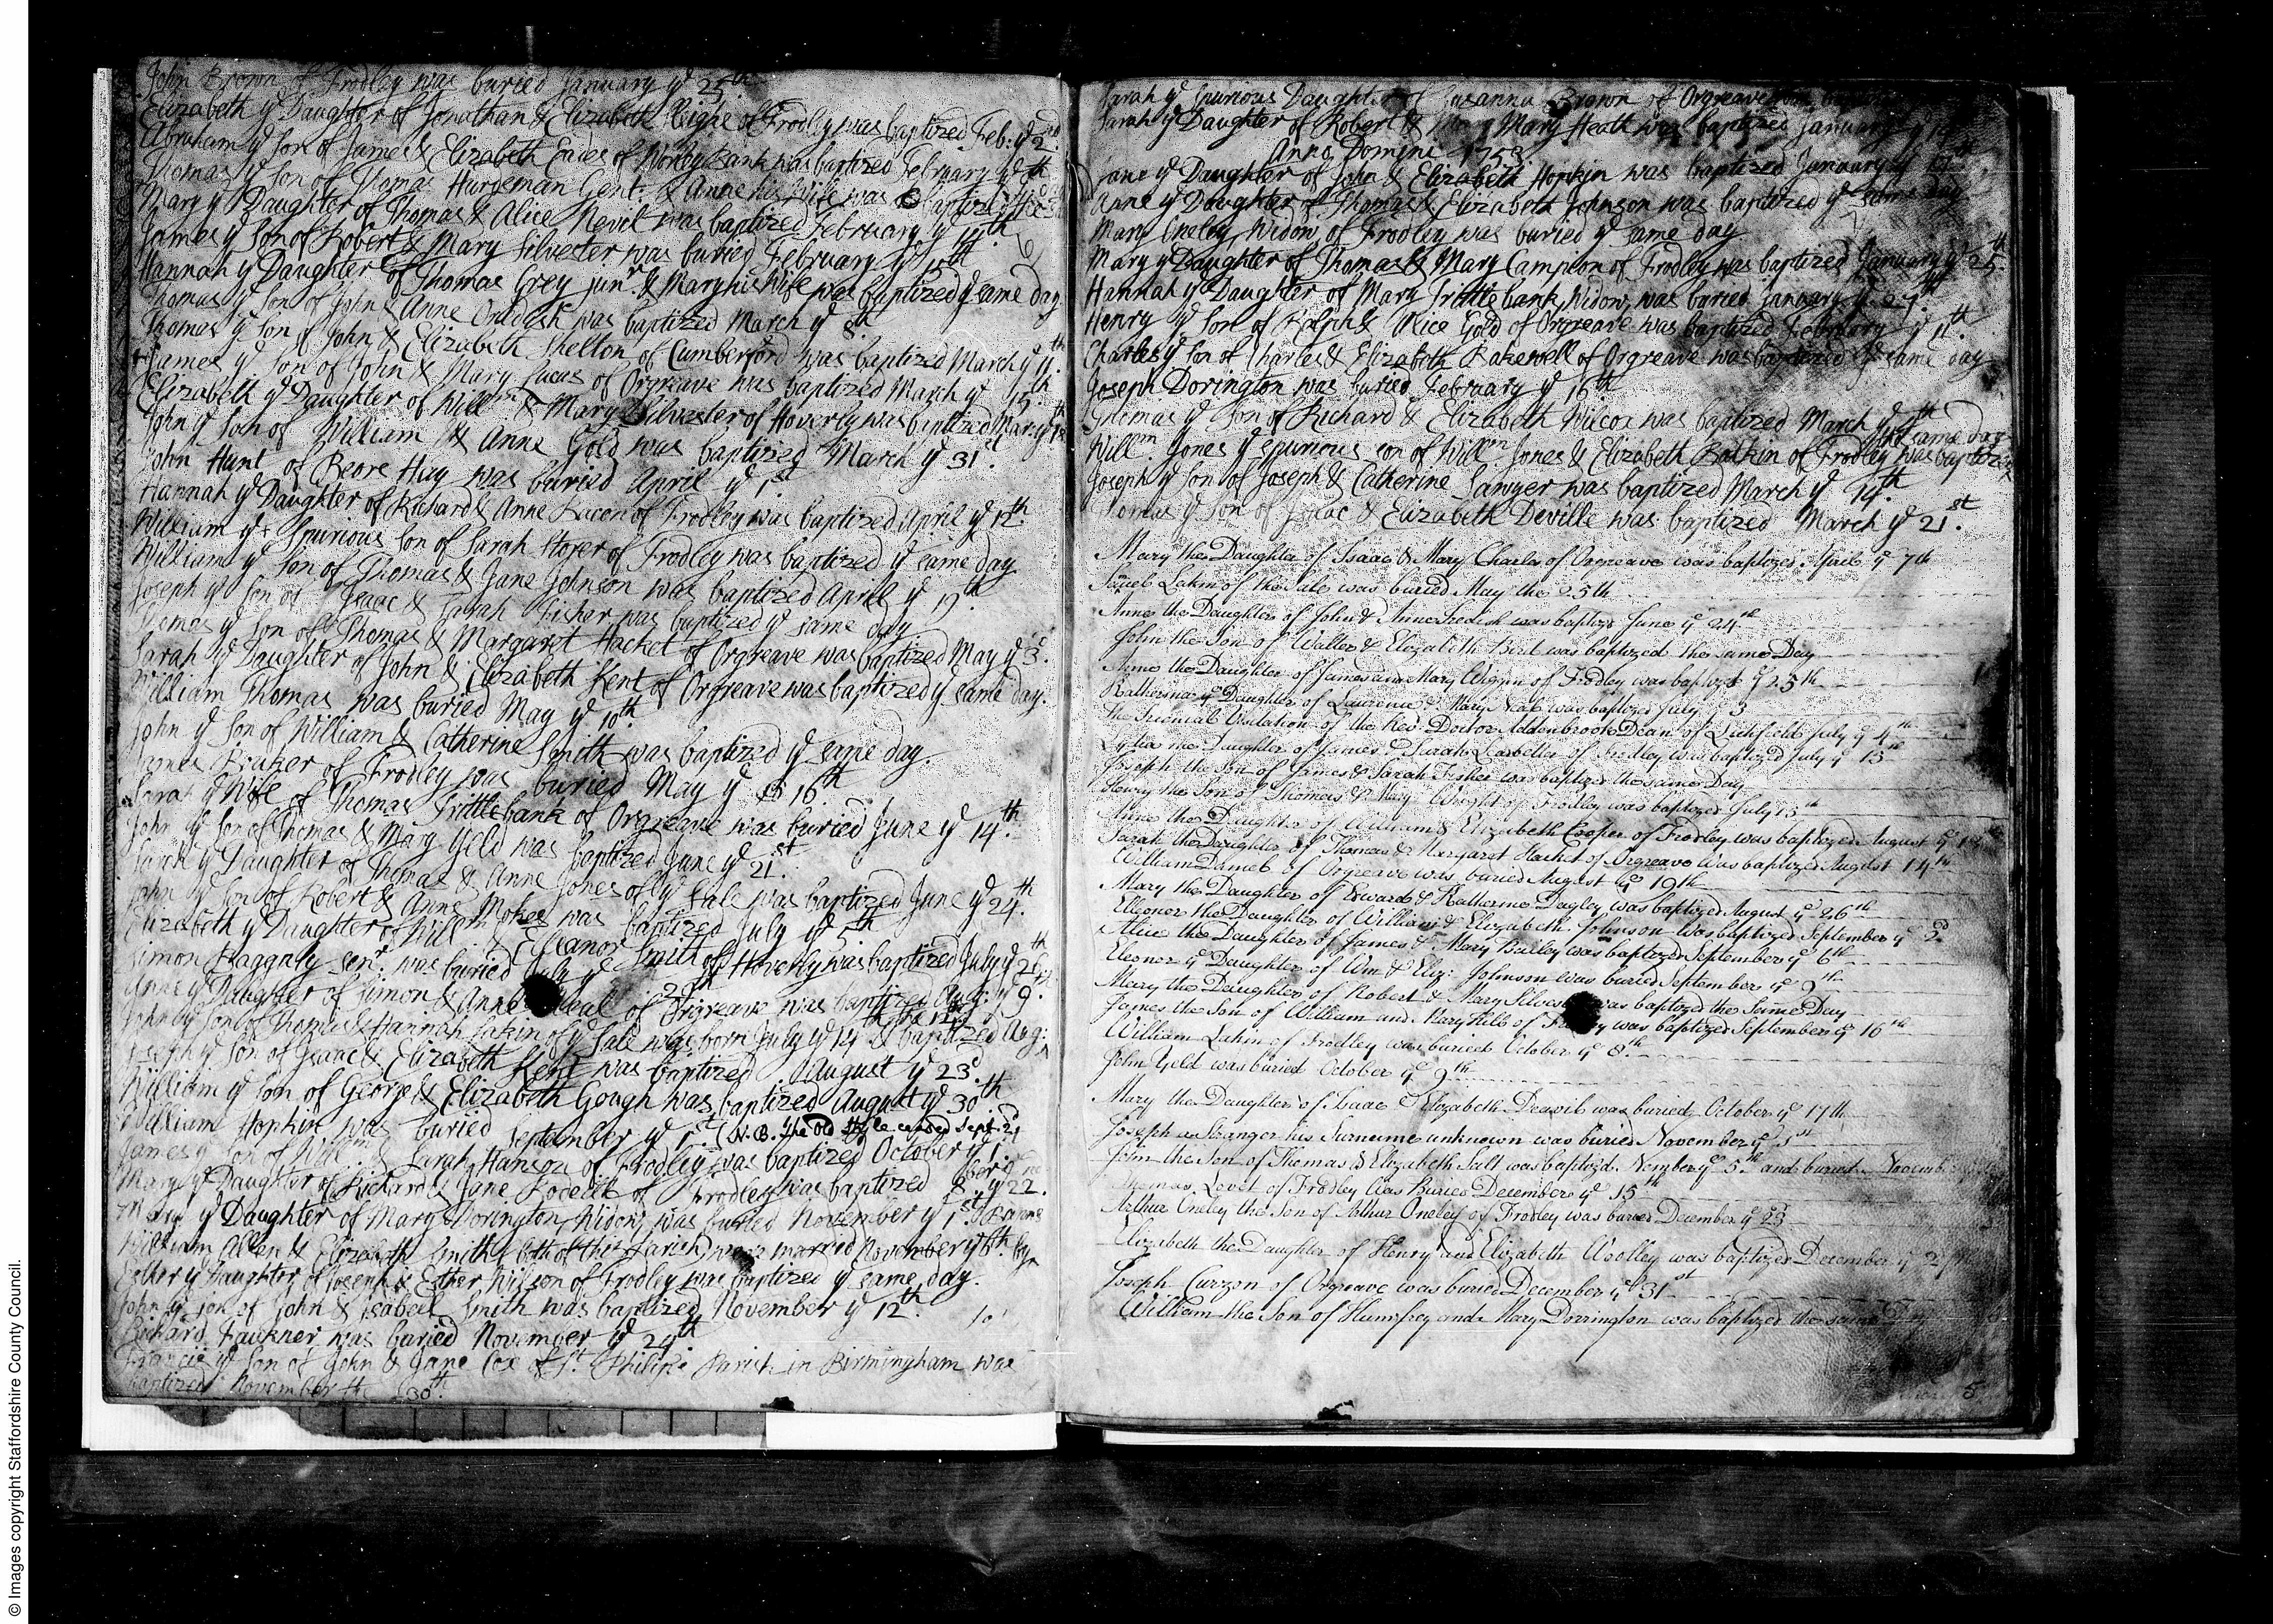 John Brown of Frodley was buried January yᵉ 25th
Elizabeth yᵉ Daughter of Jonathan & Elizabeth of Frodley was baptized Feb: yᵉ 2
Abraham yᵉ Son of James & Elizabeth Eades of Bank was baptized February yᵉ th
Thomas yᵉ Son of Thomas Hardeman Gent. & Anne his Wife was baptized
Mary yᵉ Daughter of Thomas & Alice Nevel was baptized February yᵉ th
James yᵉ Son of Robert & Mary Silvester was buried February yᵉ th
Hannah yᵉ Daughter of Thomas Grey junr. & Mary his Wife was baptized yᵉ same day
Thomas yᵉ Son of John & Anne was baptized March yᵉ 8th
Thomas yᵉ Son of John & Elizabeth Shelton of Cumberford was baptized March yᵉ
James yᵉ Son of John & Mary Lucas of Orgreave was baptized March yᵉ 15th
Elizabeth yᵉ Daughter of Willm & Mary Silvester of Hoverly was baptized Mar: yᵉ
John yᵉ Son of William & Anne Gold was baptized March yᵉ 31st
John Hunt of Beore Hay was buried April yᵉ 1st
Hannah yᵉ Daughter of Richard & Anne Bacon of Frodley was baptized April yᵉ 12th
William yᵉ Spurious Son of Sarah of Frodley was baptized yᵉ same day
William yᵉ Son of Thomas & Jane Johnson was baptized April yᵉ 19th
Joseph yᵉ Son of Isaac & Sarah Fisher was baptized yᵉ same day
Thomas yᵉ Son of Thomas & Margaret Hacket of Orgreave was baptized May yᵉ 3d.
Sarah yᵉ Daughter of John & Elizabeth Kent of Orgreave was baptized yᵉ same day.
William Thomas was buried May yᵉ 10th
John yᵉ Son of William & Catherine Smith was baptized yᵉ same day.
James of Frodley was buried May yᵉ 16th
Sarah yᵉ Wife of Thomas Trittlebank of Orgreave was buried June yᵉ 14th.
John yᵉ Son of Thomas & Mary Yeld was baptized June yᵉ 21st.
Sarah yᵉ Daughter of Thomas & Anne Jones of yᵉ Sale was baptized June yᵉ 24th.
John yᵉ Son of Robert & Anne was baptized July yᵉ 5th
Elizabeth yᵉ Daughter of Willm & Eleanor Smith of Hoverly was baptized July yᵉ 26th
Simon senr. was buried July yᵉ
Anne yᵉ Daughter of Simon & Anne of Orgreave was baptized Aug: yᵉ 9th.
John yᵉ Son of Thomas & Hannah Lakin of yᵉ Sale was born July yᵉ 14th & baptized Aug:
Joseph yᵉ Son of Isaac & Elizabeth Kent was baptized August yᵉ 23d.
William yᵉ Son of George & Elizabeth Gough was baptized August yᵉ 30th
William Hopkin was buried September yᵉ 1st. (N.B. the Old Style ended Sept. 2)
James yᵉ Son of Willm & Sarah Hanson of Frodley was baptized October yᵉ 1.
Mary yᵉ Daughter of Richard & Jane of Frodley was baptized 8ber yᵉ 22.
Mary yᵉ Daughter of Mary Dorington, Widow, was buried November yᵉ 1st.
William Allen & Elizabeth Smith both of this Parish were married November yᵉ 6th. by
Esther yᵉ Daughter of Joseph & Esther Wilson of Frodley was baptized yᵉ same day.
John yᵉ Son of John & Isabell Smith was baptized November yᵉ 12th.
Richard Faukner was buried November yᵉ 29th
Francis yᵉ Son of John & Jane Cox of St. Philip's Parish in Birmingham was
baptized November the 30th.
Sarah yᵉ Spurious Daughter of Susanna Brown of Orgreave
Sarah yᵉ Daughter of Robert & Mary Heath was baptized January yᵉ
Anno Domini 1753
Jane yᵉ Daughter of John & Elizabeth Hopkin was baptized January yᵉ
Anne yᵉ Daughter of Thomas & Elizabeth Johnson was baptized yᵉ same day
Mary Oneley, Widow, of Frodley was buried yᵉ same day
Mary yᵉ Daughter of Thomas & Mary Campeon of Frodley was baptized January yᵉ 25th.
Hannah yᵉ Daughter of Mary Trittlebank, Widow, was buried January yᵉ 27th
Henry yᵉ Son of Ralph & Alice Gold of Orgreave was baptized February yᵉ 11th
Charles yᵉ Son of Charles & Elizabeth Bakewell of Orgreave was baptized yᵉ same day
Joseph Dorington was buried February yᵉ 16th
Thomas yᵉ Son of Richard & Elizabeth Wilcox was baptized March yᵉ th
Willm. Jones yᵉ spurious son of Willm. Jones & Elizabeth Botkin of Frodley was baptized the same day
Joseph yᵉ Son of Joseph & Catherine Sawyer was baptized March yᵉ 14th.
Thomas yᵉ Son of Isaac & Elizabeth Deville was baptized March yᵉ 21st.
Mary the Daughter of Isaac & Mary Charles of Orgreave was baptized April yᵉ 7th
Lakin of the Sale was buried May the 25th
Anne the Daughter of John & Anne was baptized June yᵉ 24th
John the Son of Walter & Elizabeth Bird was baptized the same Day
Anne the Daughter of James and Mary Wiggin of Frodley was baptized yᵉ 25th
Katherine yᵉ Daughter of Laurence & Mary Neal was baptized July yᵉ 3
The Triennial Visitation of the Revd. Doctor Addenbrooke Dean of Lichfield July yᵉ 4th
Lydia the Daughter of James & Sarah of Frodley was baptized July yᵉ 13th
Joseph the Son of James & Sarah Fisher was baptized the same Day
Henry the Son of Thomas & Mary Wright of Frodley was baptized July 15th
Anne the Daughter of William & Elizabeth Cooper of Frodley was baptized August yᵉ
Sarah the Daughter of Thomas & Margaret Hacket of Orgreave was baptized August 14th
William Daniel of Orgreave was buried August yᵉ 19th
Mary the Daughter of Edward & Katherine Dagley was baptized August yᵉ 26th
Eleonor the Daughter of William & Elizabeth Johnson was baptized September yᵉ 2d
Alice the Daughter of James & Mary Bailey was baptized September yᵉ 6th
Eleonor yᵉ Daughter of Wm & Eliz: Johnson was buried September yᵉ 9th
Mary the Daughter of Robert & Mary was baptized the same Day
James the Son of William and Mary Hill of was baptized September yᵉ 16th
William Lakin of Frodley was buried October yᵉ 8th
John Yeld was buried October yᵉ 9th
Mary the Daughter of Isaac & Elizabeth was buried October yᵉ 17th
Joseph a Stranger his Surname unknown was buried November yᵉ
John the Son of Thomas & Elizabeth Salt was baptizd. Nember yᵉ 5th and buried November
Thomas Lovet of Frodley was Buried December yᵉ 15th
Arthur Oneley the Son of Arthur Oneley of Frodley was buried December yᵉ 23
Elizabeth the Daughter of Henry and Elizabeth Woolley was baptized December yᵉ
Joseph Curzon of Orgreave was buried December yᵉ 31st
William the Son of Humfrey and Mary Dorrington was baptized the same Day
5
© Images copyright Staffordshire County Council.